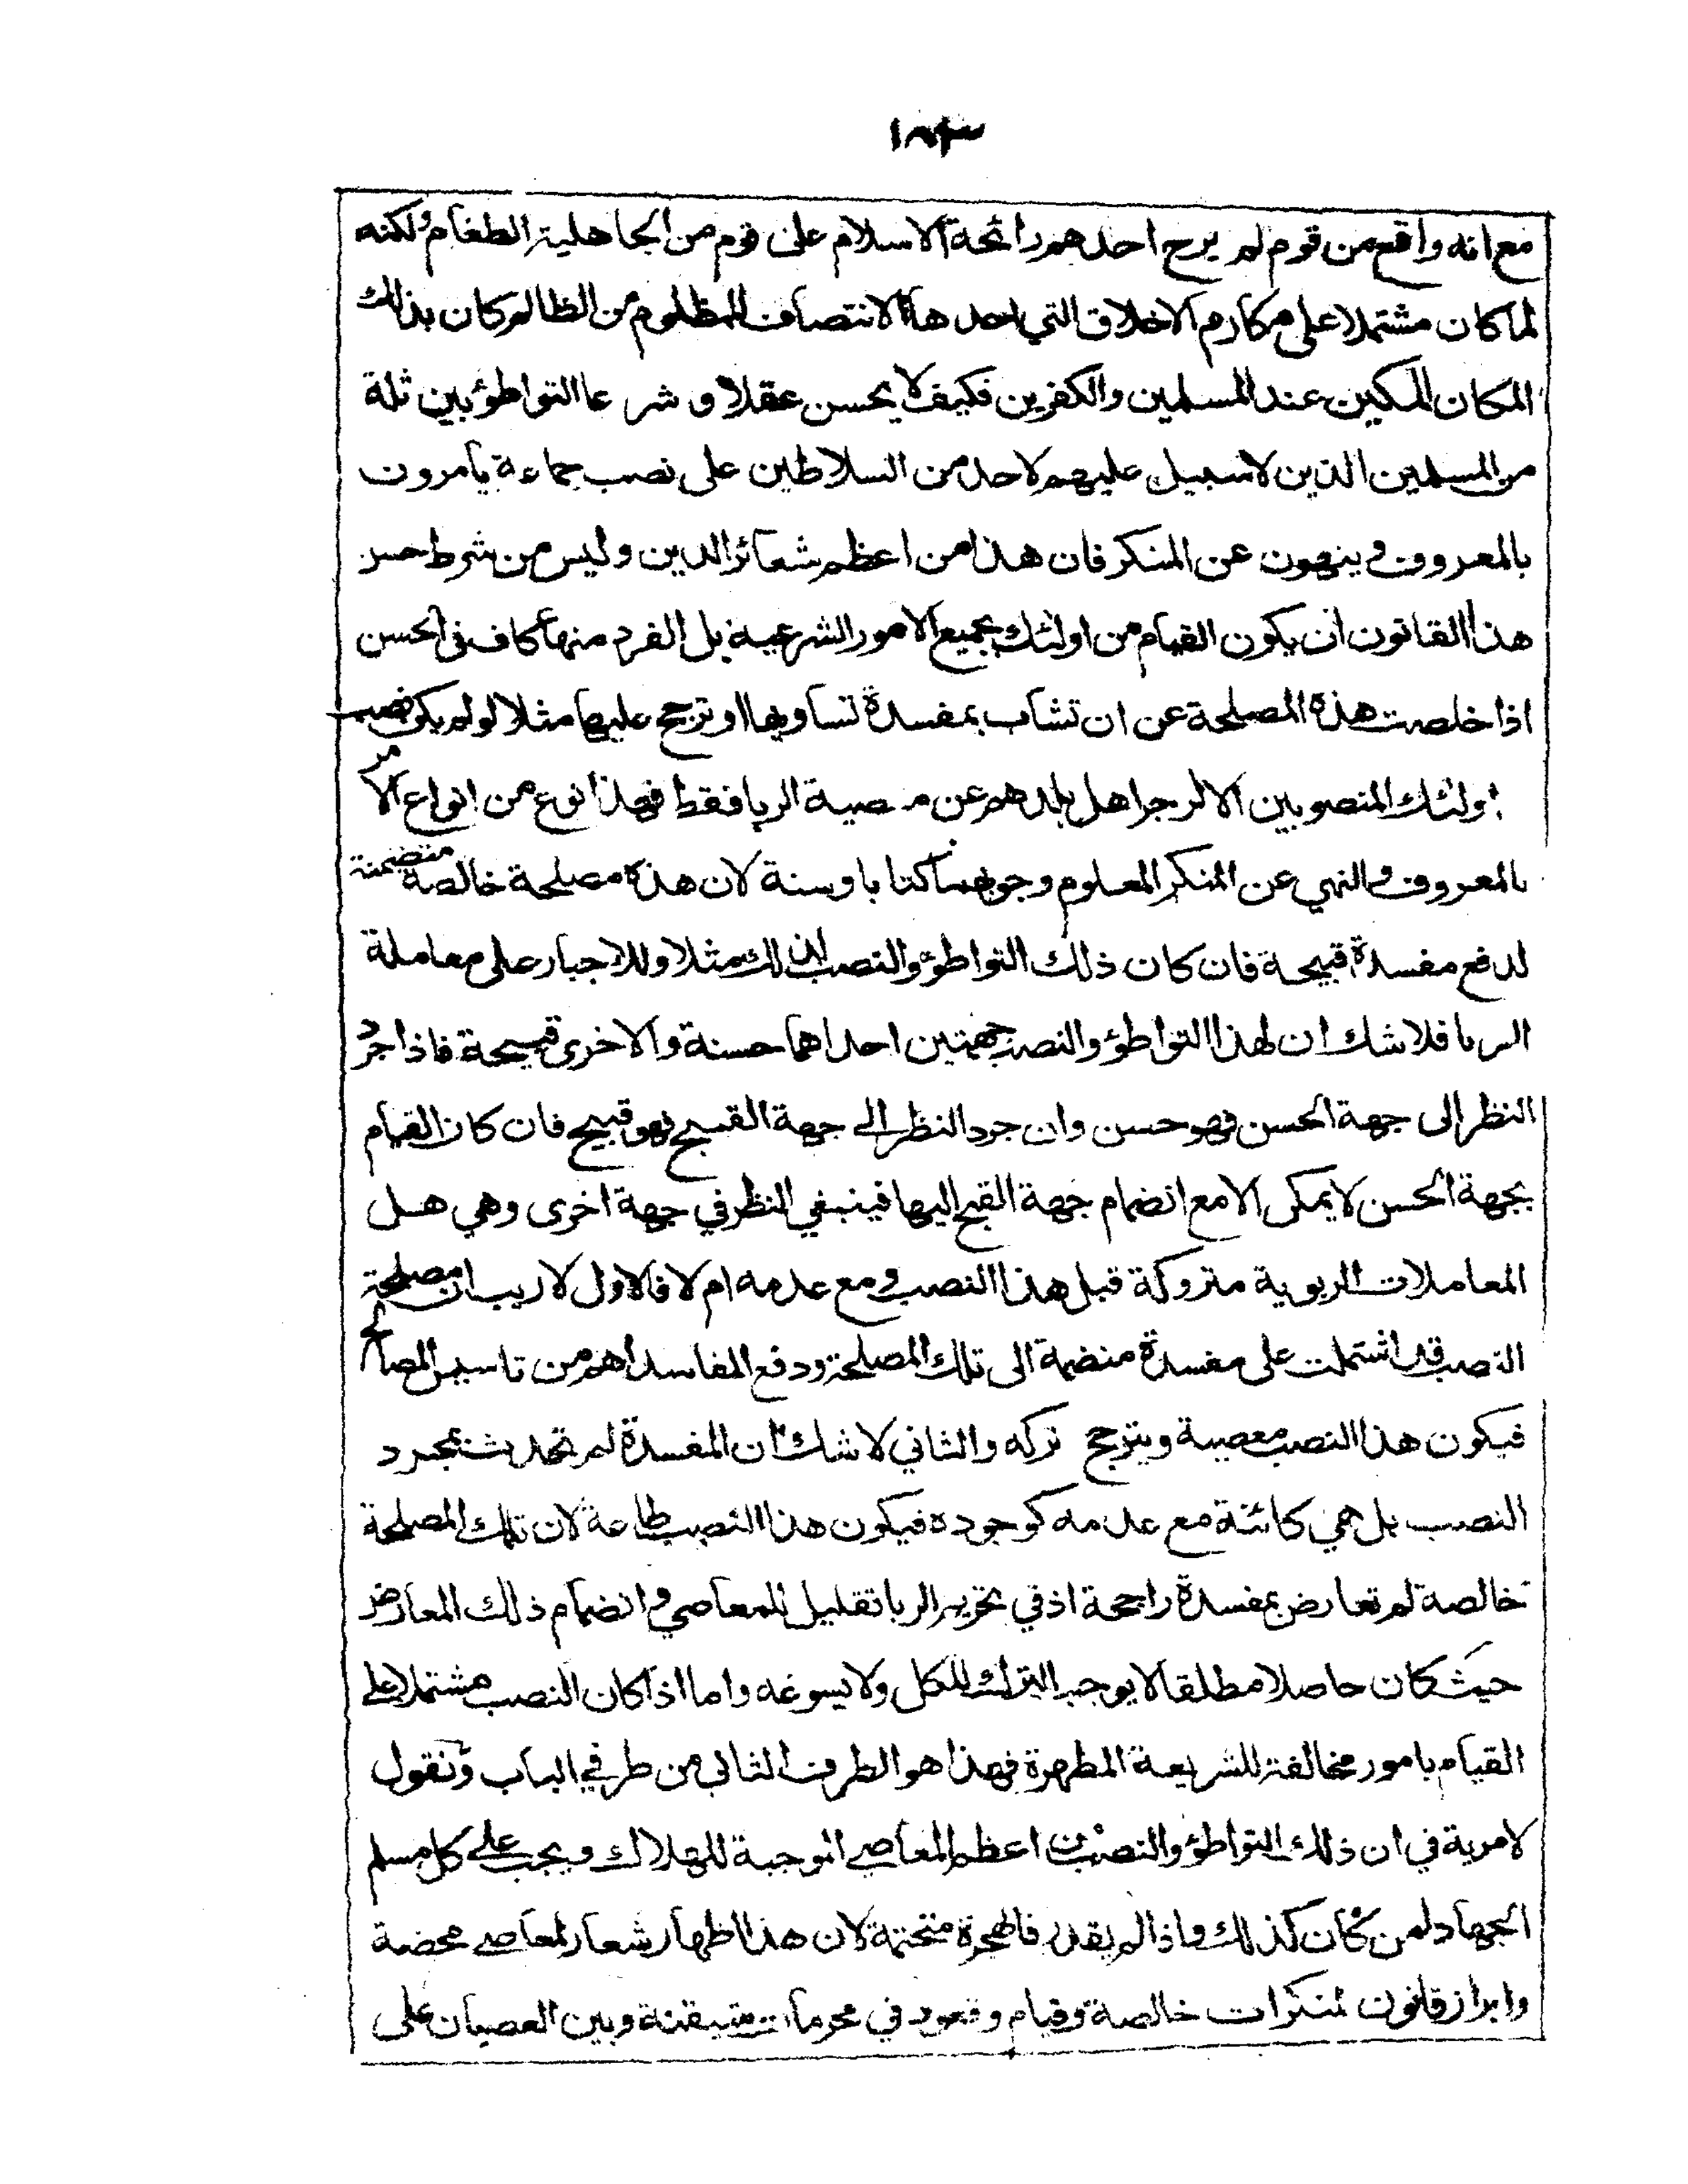 ١٨٣
مع انه واقع من قوم لم يرح احدهم رائحة الاسلام على قوم من الجاهلية الطغام ولكنه
لما كان مشتملا على مكارم الاخلاق التي احدها الانتصاف للمظلوم من الظالم كان بذلك
المكان المكين عند المسلمين والكفرين فكيف لا يحسن عقلا وشرعا التواطؤ بين ثلة
من المسلمين الذين لا سبيل عليهم لاحد من السلاطين على نصب جماعة يأمرون
بالمعروف وينهون عن المنكر فان هذا من اعظم شعائر الدين وليس من شرط حسن
هذا القانون ان يكون القيام من اولئك بجميع الامور الشرعية بل الفرد منها كاف في الحسن
اذا خلصت هذه المصلحة عن ان تشاب بمفسدة تساويها او ترجح عليها مثلا لو لم يكن نصب
اولئك المنصوبين الا لزجر اهل بلدهم عن معصية الربا فقط فهذا نوع من انواع الامر
بالمعروف والنهي عن المنكر المعلوم وجوبهما كتابا وسنة لان هذه مصلحة خالصة متضمنة
لدفع مفسدة قبيحة فان كان ذلك التواطؤ والنصب لذلك مثلا وللاجبار على معاملة
الربا فلا شك ان لهذا التواطؤ والنصب جهتين احداهما حسنة والاخرى قبيحة فاذا جرد
النظر الى جهة الحسن فهو حسن وان جرد النظر الى جهة القبيح فهو قبيح فان كان القيام
بجهة الحسن لا يمكن الا مع انضمام جهة القبح اليها فينبغي النظر في جهة اخرى وهي هل
المعاملات الربوية متروكة قبل هذا النصب ومع عدمه ام لا فالاول لا ريب ان مصلحة
النصب قد اشتملت على مفسدة منضمة الى تلك المصلحة ودفع المفاسد اهم من تاسيس المصالح
فيكون هذا النصب معصية ويترجح تركه والثاني لا شك ان المفسدة لم تحدث بمجرد
النصب بل هي كائنة مع عدمه كوجوده فيكون هذا النصب طاعة لان تلك المصلحة
خالصة لم تعارض بمفسدة راجحة اذ في تحريم الربا تقليل للمعاصي وانضمام ذلك المعارض
حيث كان حاصلا مطلقا لا يوجب الترك للكل ولا يسوغه واما اذا كان النصب مشتملا على
القيام بامور مخالفة للشريعة المطهرة فهذا هو الطرف الثاني من طرفي الباب ونقول
لا مرية في ان ذلك التواطؤ والنصب من اعظم المعاصي الموجبة للهلاك ويجب على كل مسلم
الجهاد لمن كان كذلك واذا لم يقدر فالهجرة متحتمة لان هذا اظهار شعار لمعاصي محضة
وابراز قانون لمنكرات خالصة وقيام وقعود في محرمات متيقنة وبين العصيان على